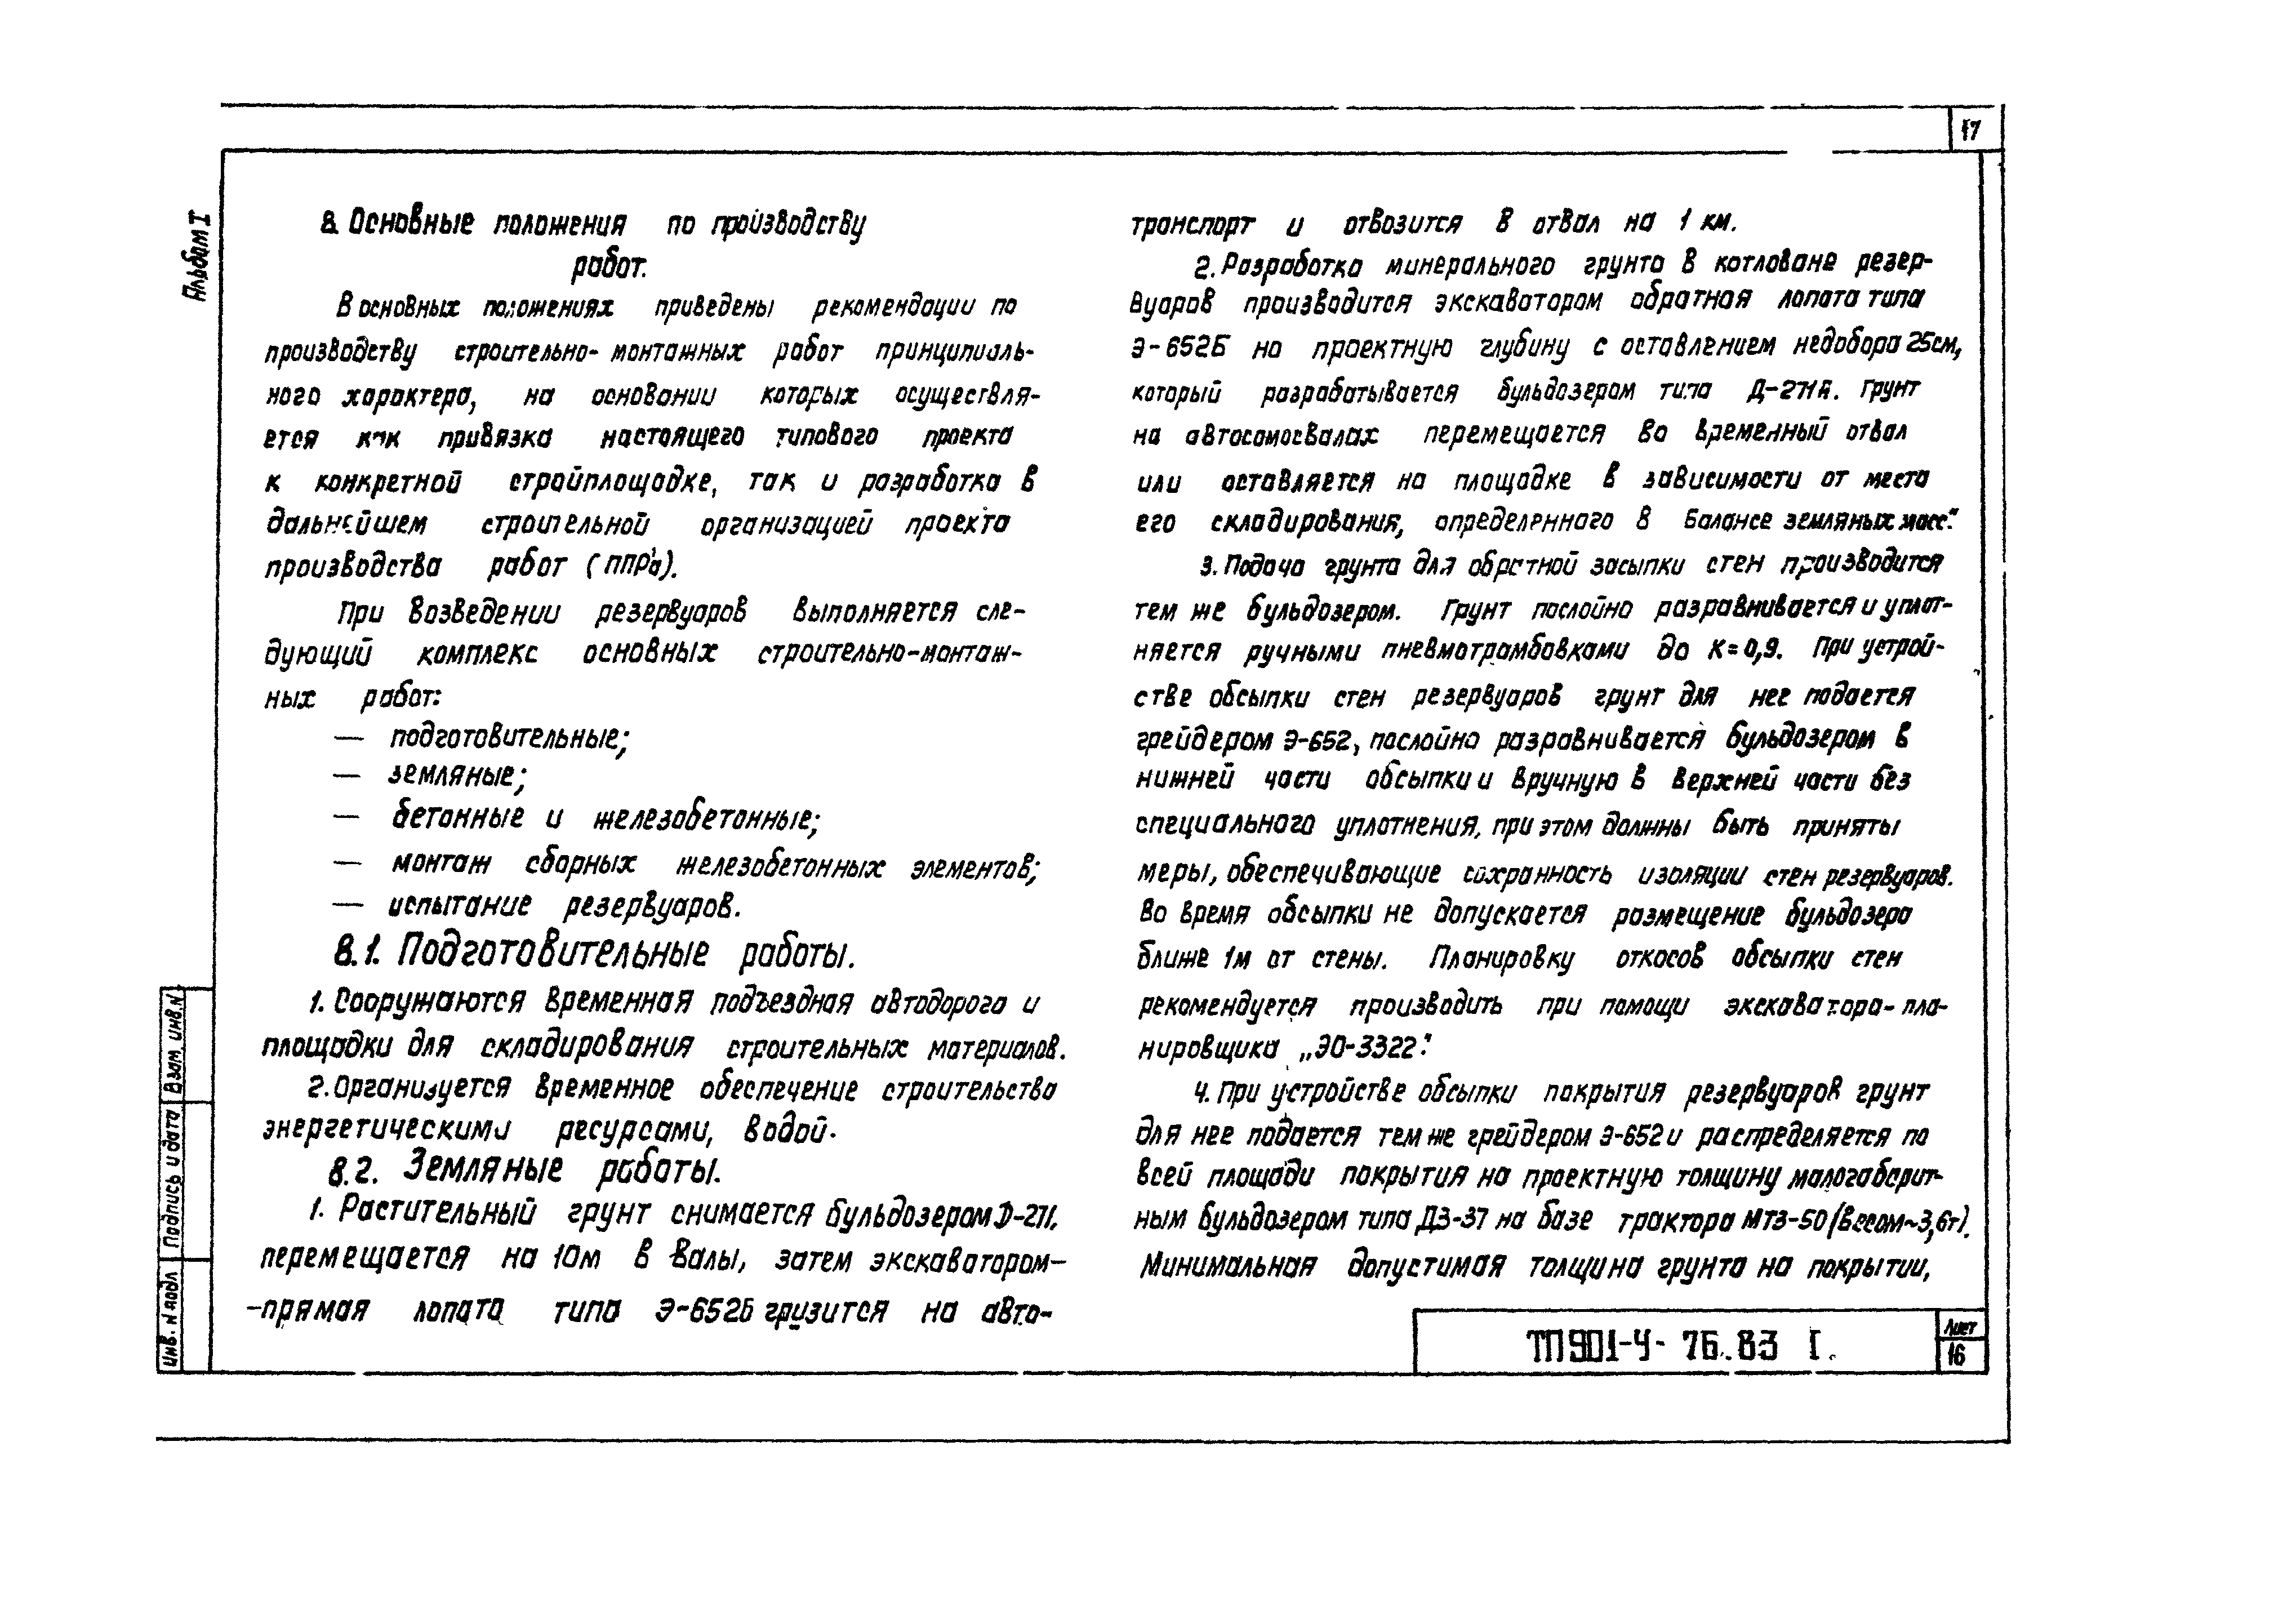 17
Альбом I
8. Основные положения по производству
работ.
В основных положениях приведены рекомендации по
производству строительно-монтажных работ принципиаль-
ного характера, на основании которых осуществля-
ется как привязка настоящего типового проекта
к конкретной стройплощадке, так и разработка в
дальнейшем строительной организацией проекта
производства работ (ППР'а).
При возведении резервуаров выполняется сле-
дующий комплекс основных строительно-монтаж-
ных работ:
— подготовительные;
— земляные;
— бетонные и железобетонные;
— монтаж сборных железобетонных элементов;
— испытание резервуаров.
8.1. Подготовительные работы.
1. Сооружаются временная подъездная автодорога и
площадки для складирования строительных материалов.
2. Организуется временное обеспечение строительства
энергетическими ресурсами, водой.
8.2. Земляные работы.
1. Растительный грунт снимается бульдозером Д-271,
перемещается на 10м в валы, затем экскаватором-
-прямая лопата типа Э-652Б грузится на авто-
транспорт и отвозится в отвал на 1 км.
2. Разработка минерального грунта в котловане резер-
вуаров производится экскаватором обратная лопата типа
Э-652Б на проектную глубину с оставлением недобора 25см,
который разрабатывается бульдозером типа Д-271А. Грунт
на автосамосвалах перемещается во временный отвал
или оставляется на площадке в зависимости от места
его складирования, определенного в „Балансе земляных масс".
3. Подача грунта для обратной засыпки стен производится
тем же бульдозером. Грунт послойно разравнивается и уплот-
няется ручными пневмотрамбовками до К=0,9. При устрой-
стве обсыпки стен резервуаров грунт для нее подается
грейдером Э-652, послойно разравнивается бульдозером в
нижней части обсыпки и вручную в верхней части без
специального уплотнения, при этом должны быть приняты
меры, обеспечивающие сохранность изоляции стен резервуаров.
Во время обсыпки не допускается размещение бульдозера
ближе 1м от стены. Планировку откосов обсыпки стен
рекомендуется производить при помощи экскаватора-пла-
нировщика „ЭО-3322".
4. При устройстве обсыпки покрытия резервуаров грунт
для нее подается тем же грейдером Э-652 и распределяется по
всей площади покрытия на проектную толщину малогаберит-
ным бульдозером типа ДЗ-37 на базе трактора МТЗ-50 (весом ~3,6т).
Минимальная допустимая толщина грунта на покрытии,
Взам. инв. N
Подпись и дата
Инв. N подл
ТП 901-4-76.83 I.
Лист
16